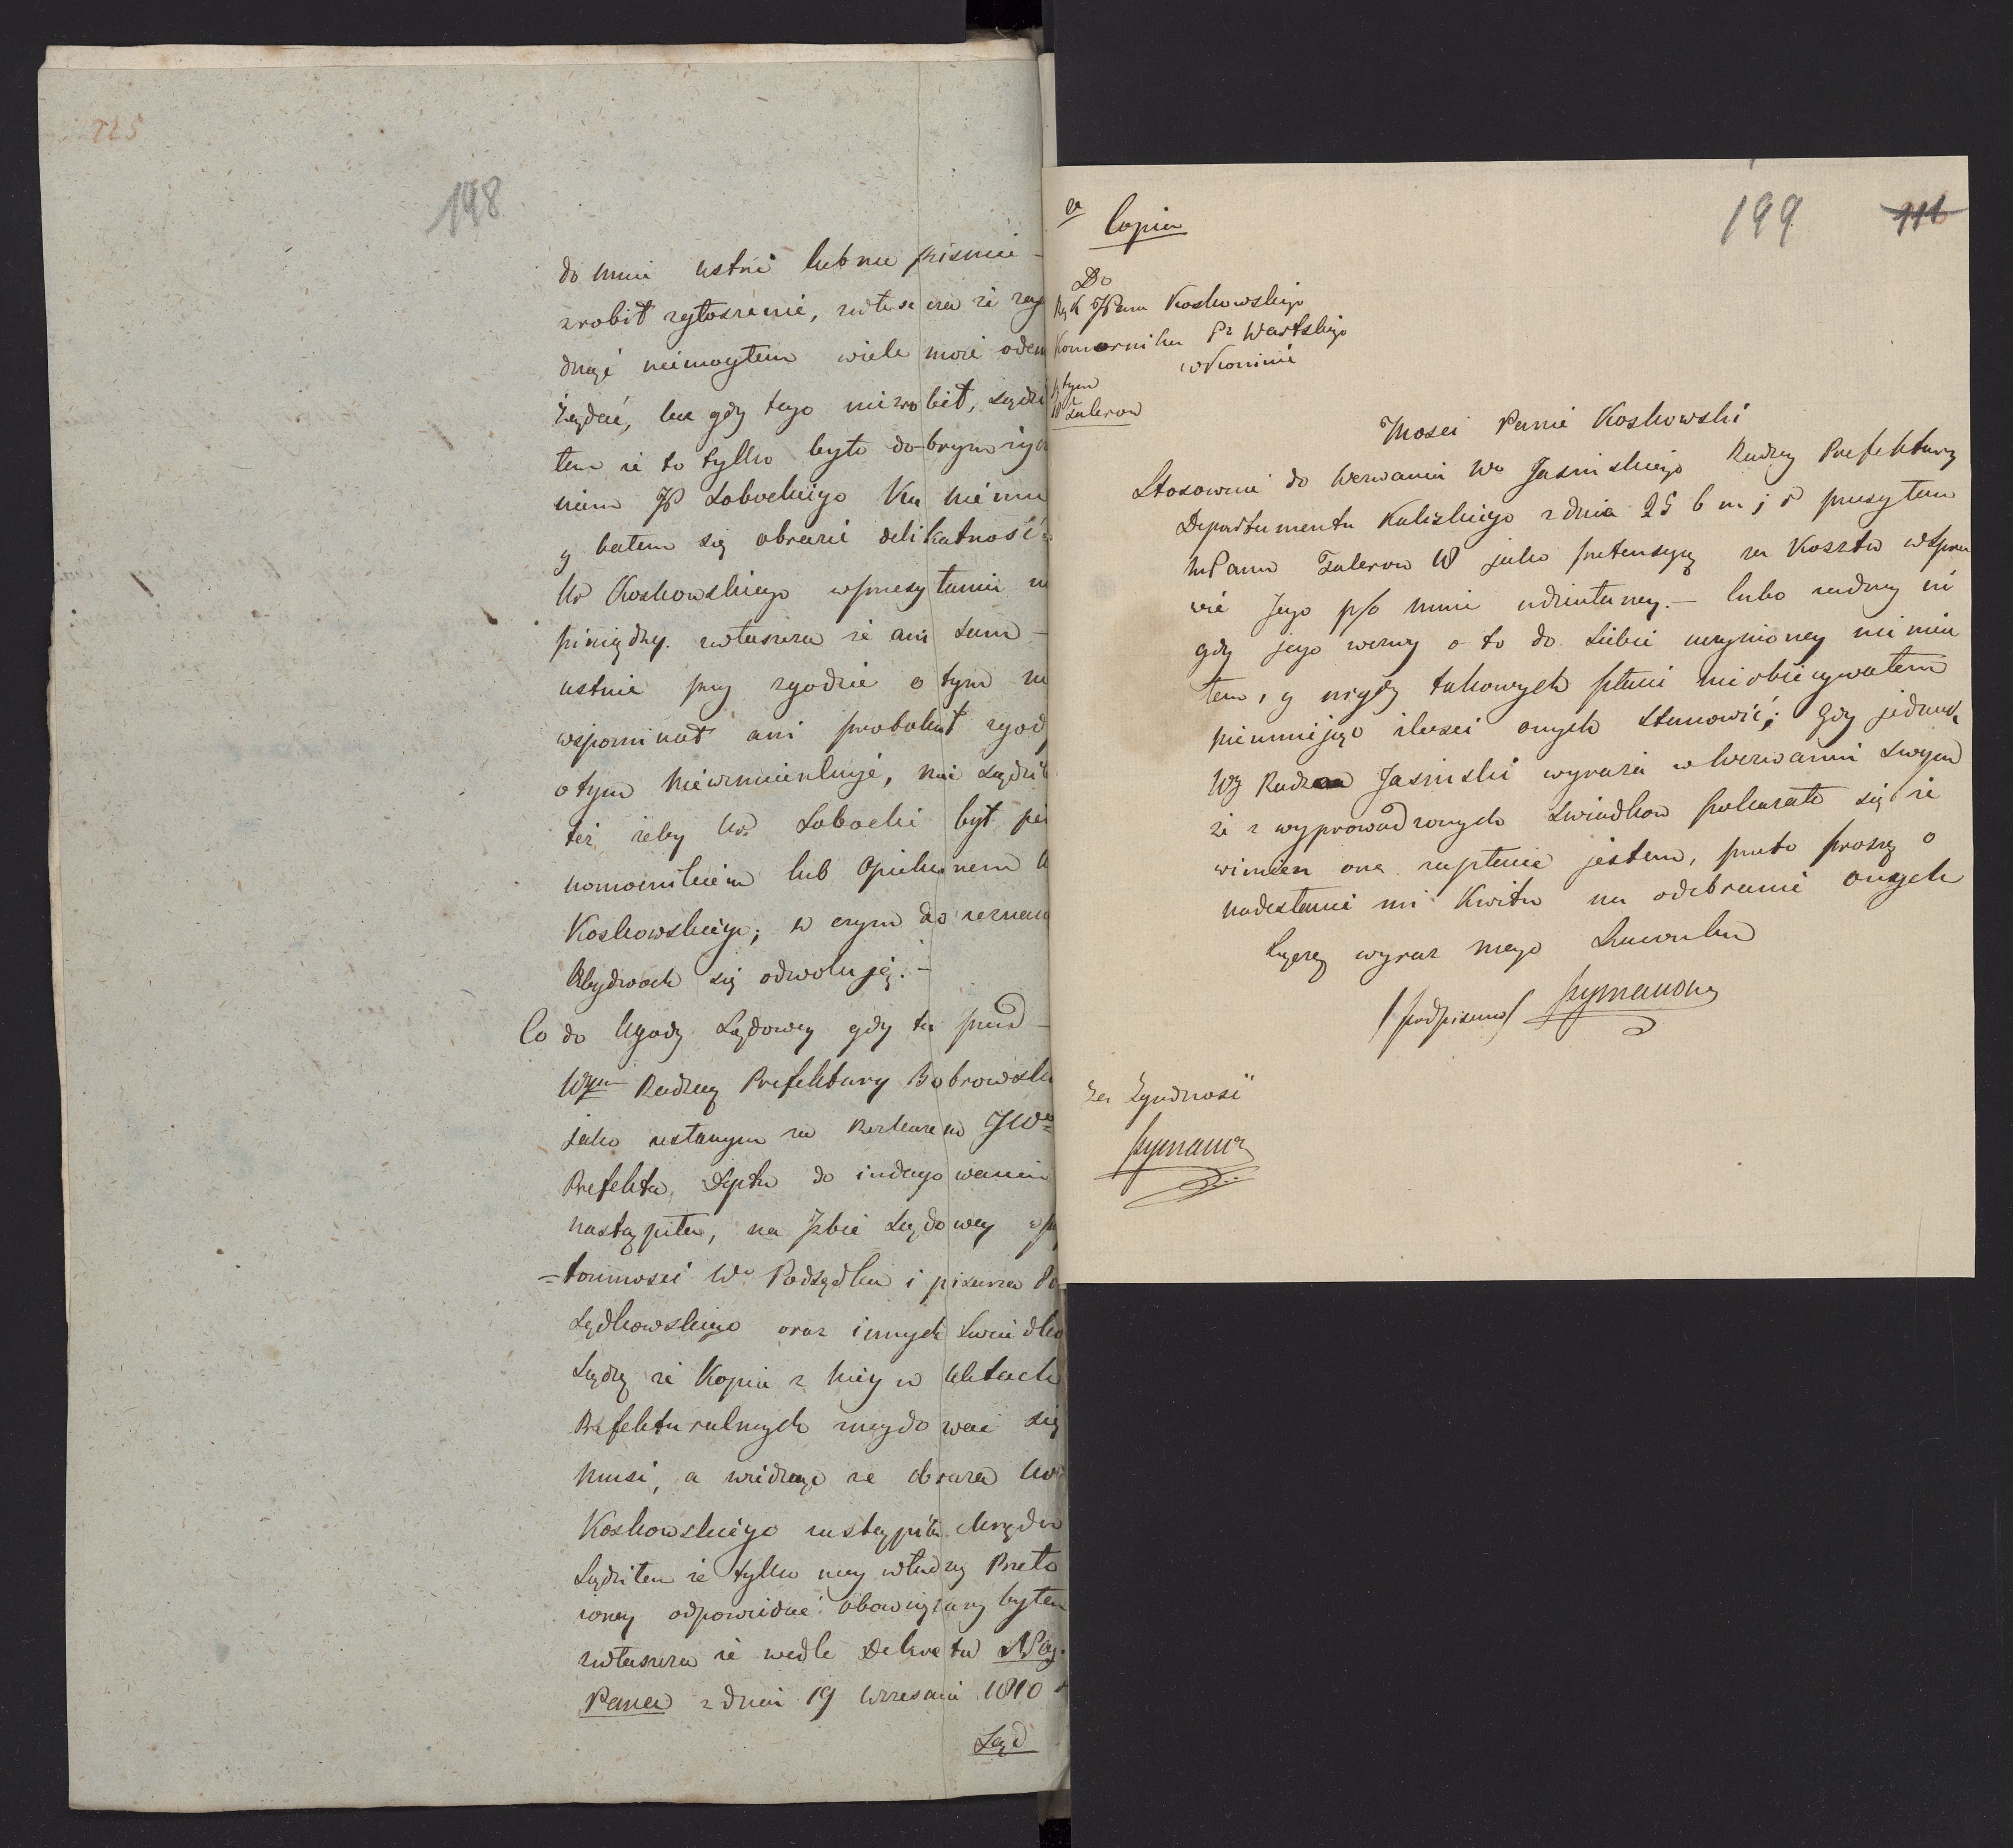 225
198
do mnie ustnie lub na pismie -
zrobił zgłoszenie, zwłaszcza że
dnąć niemogłem wiele może odem
żądać, lecz gdy tego niezrobił, sądzi
łem że to tylko było dobrym życ
niem JP Sobockiego Ku niemu
y bałem się obrazić delikatność
Wo Koskowskiego w przesyłaniu
pieniędzy. zwłaszcza że ani sam -
ustnie przy zgodzie o tym
wspominał ani protokuł zgod
o tym niewzmiankuje, nie sądził
też, żeby Wo Sobocki był peł
nomocnikiem lub Opiekunem
Koskowskiego; w czym do zeznan
Obydwoch się odwołuję. -
Co do Ugody Sądowey gdy ta przed -
Wym Radcą Prefektury Bobrowsk
jako zesłanym za Rozkazem JWo
Prefekta, Dptu do indagowania
nastąpiła, na Izbie Sądowey w
=tomnosci Wo Podsędka i pisarza
Sędkowskiego oraz innych Swiadko
Sądzę że Kopia z niey w Aktach
Prefekturalnych znaydować się
musi, a widząc że obraza Wo
Koskowskiego zastąpiła Urzędu
Sądziłem że tylko mey władzy Przeło
żoney odpowiadać obowiązany byłem
zwłaszcza że wedle Dekretu NPay.
Pana z dnia 19 Wrzesnia 1810
Sąd
199 111
a
Copia
Do
JPana Koskowskiego
Komornika Pu Wartskiego
w Koninie
tym
18 Talerow
Mosci Panie Koskowski
Stosownie do Wezwania Wo Jasinskiego Radcy Prefektury
Departamentu Kaliskiego z dnia 25 b m i r przesyłam
WPanu Talerow 18 jako pretensyę za Koszta w spra
wie Jego p/o mnie udziałaney. - lubo żadney ni
gdy jego wezwy o to do Siebie uczynioney niemia
łem, y nigdy takowych płacić nieobiecywałem
nieumiejąc ilosci onych stanowić; Gdy jednak
Wy Radca Jasinski wyraża w Wezwaniu Swym
że z wyprowadzonych Swiadkow pokazało się że
winien one zapłacić jestem, przeto proszę o
nadesłanie mi Kwitu na odebranie onych
Łączę wyraz mego Szacunku
/podpisano/ Szymanows
Za Zgodnosć
Szymanos